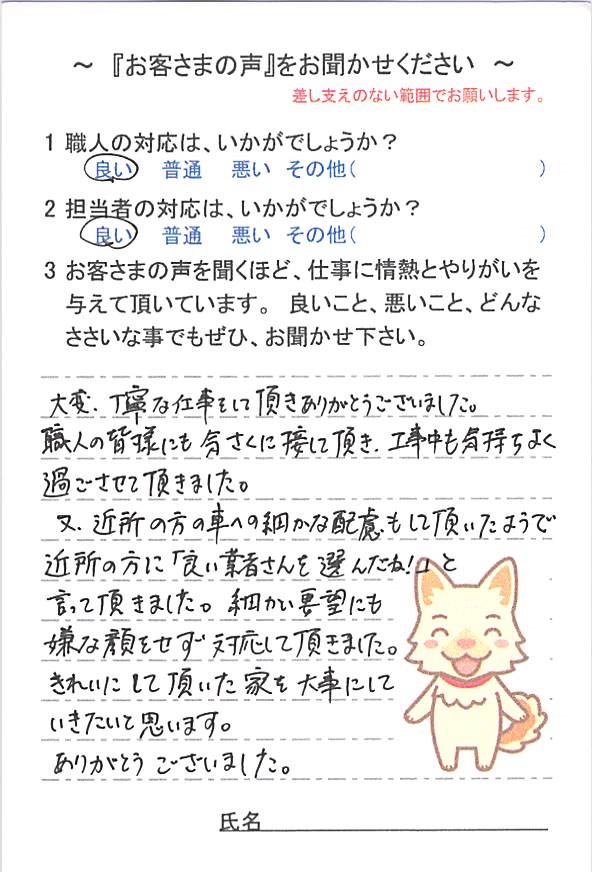 ～ 『お客さまの声』をお聞かせください ～
差し支えのない範囲でお願いします。
1 職人の対応は、いかがでしょうか？
良い 普通 悪い その他( )
2 担当者の対応は、いかがでしょうか？
良い 普通 悪い その他( )
3 お客さまの声を聞くほど、仕事に情熱とやりがいを
与えて頂いています。 良いこと、悪いこと、どんな
ささいな事でもぜひ、お聞かせ下さい。
大変、丁寧な仕事をして頂きありがとうございました。
職人の皆様にも気さくに接して頂き、工事中も気持ちよく
過ごさせて頂きました。
又、近所の方の車への細かな配慮もして頂いたようで
近所の方に「良い業者さんを選んだね！」と
言って頂きました。細かい要望にも
嫌な顔をせず対応して頂きました。
きれいにして頂いた家を大事にして
いきたいと思います。
ありがとうございました。
氏名